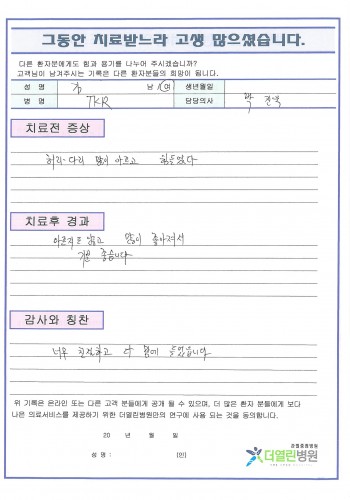 그동안 치료받느라 고생 많으셨습니다.
다른 환자분에게도 힘과 용기를 나누어 주시겠습니까?
고객님이 남겨주시는 기록은 다른 환자분들의 희망이 됩니다.
성 명 김 남/여 생년월일
병 명 TKR 담당의사 박
치료전 증상
허리·다리 많이 아프고 힘들었다
치료후 경과
아프지도 않고 많이 좋아져서
기분 좋습니다
감사와 칭찬
너무 친절하고 다 맘에 들었습니다
위 기록은 온라인 또는 다른 고객 분들에게 공개 될 수 있으며, 더 많은 환자 분들에게 보다
나은 의료서비스를 제공하기 위한 더열린병원만의 연구에 사용 되는 것을 동의합니다.
20 년 월 일
성 명 : (인)
관절중점병원
더열린병원